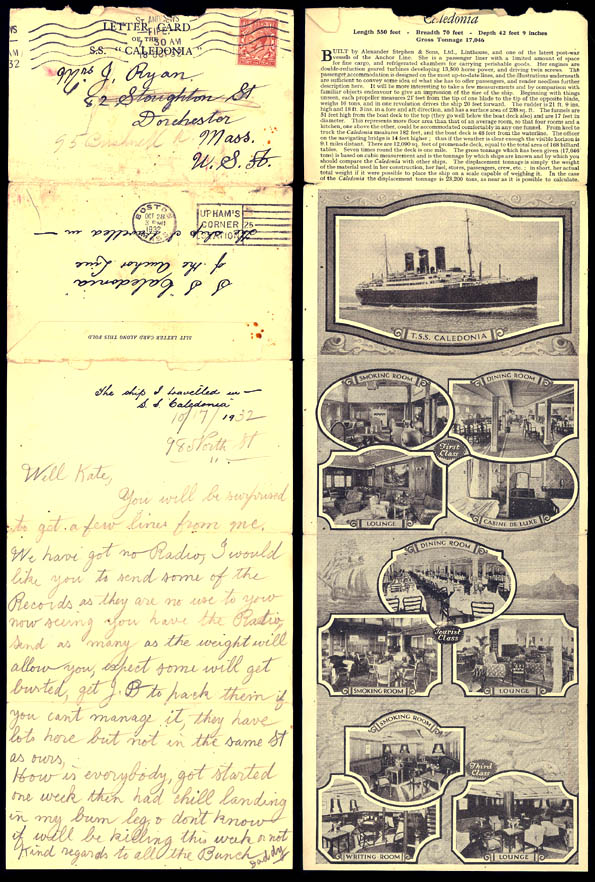 ST. ANDREWS
FIFE
30 AM
1932
LETTER CARD
OF THE
S.S. "CALEDONIA"
J. Ryan
82 Stoughton St
Dorchester
Mass.
U.S.A.
BOSTON
OCT 28
1932
MASS.
UPHAM'S
CORNER
STATION
25
The ship I travelled in —
S S Caledonia
of the Anchor Line
SLIT LETTER CARD ALONG THIS FOLD
The ship I travelled in —
S. S. Caledonia
10/17/1932
98 North St
Well Kate,
You will be surprised
to get a few lines from me.
We have got no Radio, I would
like you to send some of the
Records as they are no use to yow
now seeing you have the Radio,
send as many as the weight will
allow you, expect some will get
bursted, get J. D to pack them if
you cant manage it, they have
lots here but not in the same St
as ours,
How is everybody, got started
one week then had chill landing
in my bum leg, & don't know
if will be killing this week or not
Kind regards to all the Bunch
Daddy
Caledonia
Length 550 feet - Breadth 70 feet - Depth 42 feet 9 inches
Gross Tonnage 17,046
BUILT by Alexander Stephen & Sons, Ltd., Linthouse, and one of the latest post-war
vessels of the Anchor Line. She is a passenger liner with a limited amount of space
for fine cargo, and refrigerated chambers for carrying perishable goods. Her engines are
double-reduction geared turbines, developing 13,500 horse power, and driving twin screws. The
passenger accommodation is designed on the most up-to-date lines, and the illustrations underneath
are sufficient to convey some idea of what she has to offer passengers, and render needless further
description here. It will be more interesting to take a few measurements and by comparison with
familiar objects endeavour to give an impression of the size of the ship. Beginning with things
unseen, each propeller measures 17 feet from the tip of one blade to the tip of the opposite blade,
weighs 16 tons, and in one revolution drives the ship 20 feet forward. The rudder is 21 ft. 9 in.
high and 18 ft. 3 ins. in a fore and aft direction, and has a surface area of 238 sq. ft. The funnels are
31 feet high from the boat deck to the top (they go well below the boat deck also) and are 17 feet in
diameter. This represents more floor area than that of an average room, so that four rooms and a
kitchen, one above the other, could be accommodated comfortably in any one funnel. From keel to
truck the Caledonia measures 182 feet, and the boat deck is 48 feet from the waterline. The officer
on the navigating bridge is 54 feet higher; thus if the weather is clear enough the visible horizon is
9.1 miles distant. There are 12,090 sq. feet of promenade deck, equal to the total area of 168 billiard
tables. Seven times round the deck is one mile. The gross tonnage which has been given (17,046
tons) is based on cubic measurement and is the tonnage by which ships are known and by which you
should compare the Caledonia with other ships. The displacement tonnage is simply the weight
of the material used in her construction, her fuel, stores, passengers, crew, etc.; in short, her actual
total weight if it were possible to place the ship on a scale capable of weighing it. In the case
of the Caledonia the displacement tonnage is 23,200 tons, as near as it is possible to calculate.
T.S.S. CALEDONIA
SMOKING ROOM
DINING ROOM
First
Class
LOUNGE
CABINE DE LUXE
DINING ROOM
Tourist
Class
SMOKING ROOM
LOUNGE
SMOKING ROOM
Third
Class
WRITING ROOM
LOUNGE